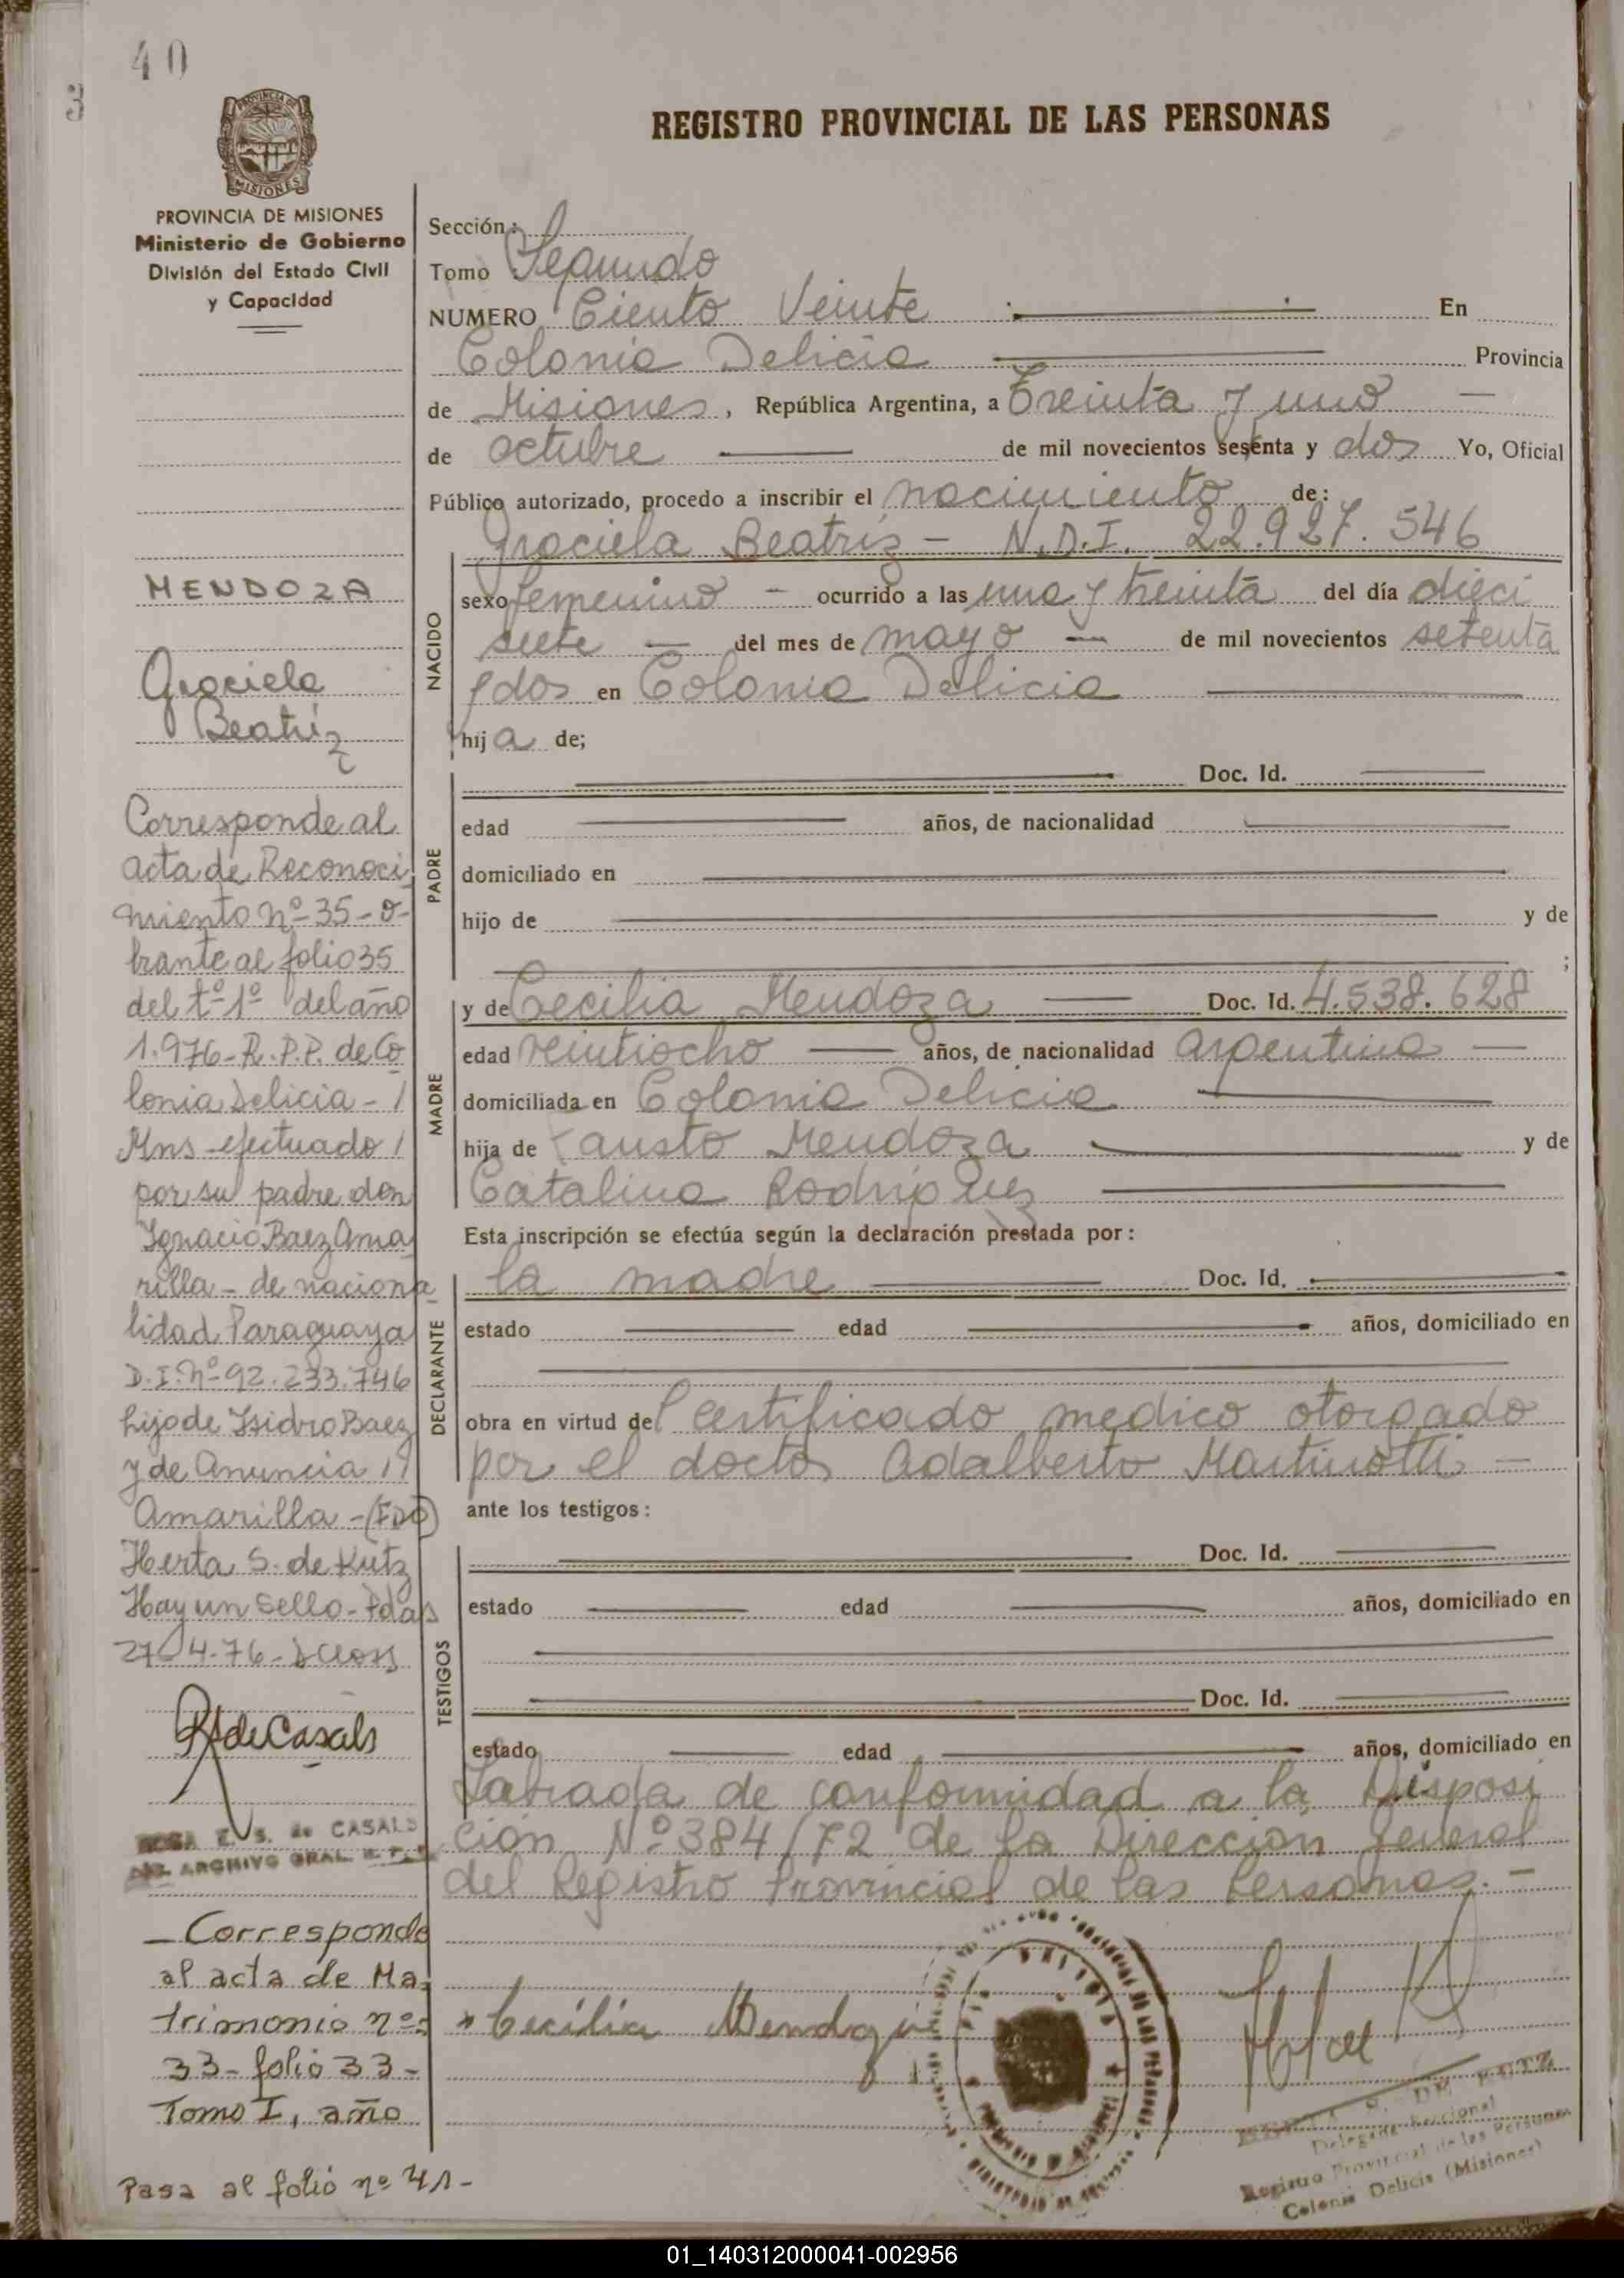 40
3
PROVINCIA DE MISIONES
Ministerio de Gobierno
División del Estado Civil
y Capacidad
MENDOZA
Graciela
Beatriz
Corresponde al
acta de Reconoci
miento nº 35-o-
brante al folio 35
del tº 1º del año
1.976-R.P.P. de Co
lonia Delicia - /
Mns - efectuado /
por su padre don
Ignacio Baez Ama
rilla - de naciona
lidad Paraguaya
D.I. nº 92.233.746
hijo de Isidro Baez
y de Anuncia //
Amarilla - (FDO)
Herta S. de Kutz
Hay un Sello - Pdas
27-4-76-
RSdeCasals
ROSA E. S. de CASALS
ARCHIVO GRAL R.P.P.
- Corresponde
al acta de Ma-
trimonio nº:
33- folio 33-
Tomo I, año
Pasa al folio nº 41-
REGISTRO PROVINCIAL DE LAS PERSONAS
Sección:
Tomo : Segundo
NUMERO Ciento Veinte En
Colonia Delicia Provincia
de Misiones, República Argentina, a Treinta y uno -
de octubre de mil novecientos sesenta y dos Yo, Oficial
Público autorizado, procedo a inscribir el nacimiento de:
Graciela Beatriz - N.D.I. 22.927.546
NACIDO
sexo femenino - ocurrido a las una y treinta del día dieci
siete - del mes de mayo - de mil novecientos setenta
y dos en Colonia Delicia
hija de;
PADRE
Doc. Id.
edad años, de nacionalidad
domiciliado en
hijo de y de
;
MADRE
y de Cecilia Mendoza Doc. Id. 4.538.628
edad veintiocho años, de nacionalidad argentina -
domiciliada en Colonia Delicia
hija de Fausto Mendoza y de
Catalina Rodriguez
Esta inscripción se efectúa según la declaración prestada por:
DECLARANTE
la madre Doc. Id.
estado edad años, domiciliado en
obra en virtud del certificado medico otorgado
por el doctor Adalberto Martinotti -
ante los testigos:
TESTIGOS
Doc. Id.
estado edad años, domiciliado en
Doc. Id.
estado edad años, domiciliado en
Labrada de conformidad a la Disposi
ción Nº 384/72 de la Dirección General
del Registro Provincial de las Personas. -
Cecilia Mendoza
S. DE KUTZ
Delegada Seccional
Registro Provincial de las Personas
Colonia Delicia (Misiones)
01_140312000041-002956